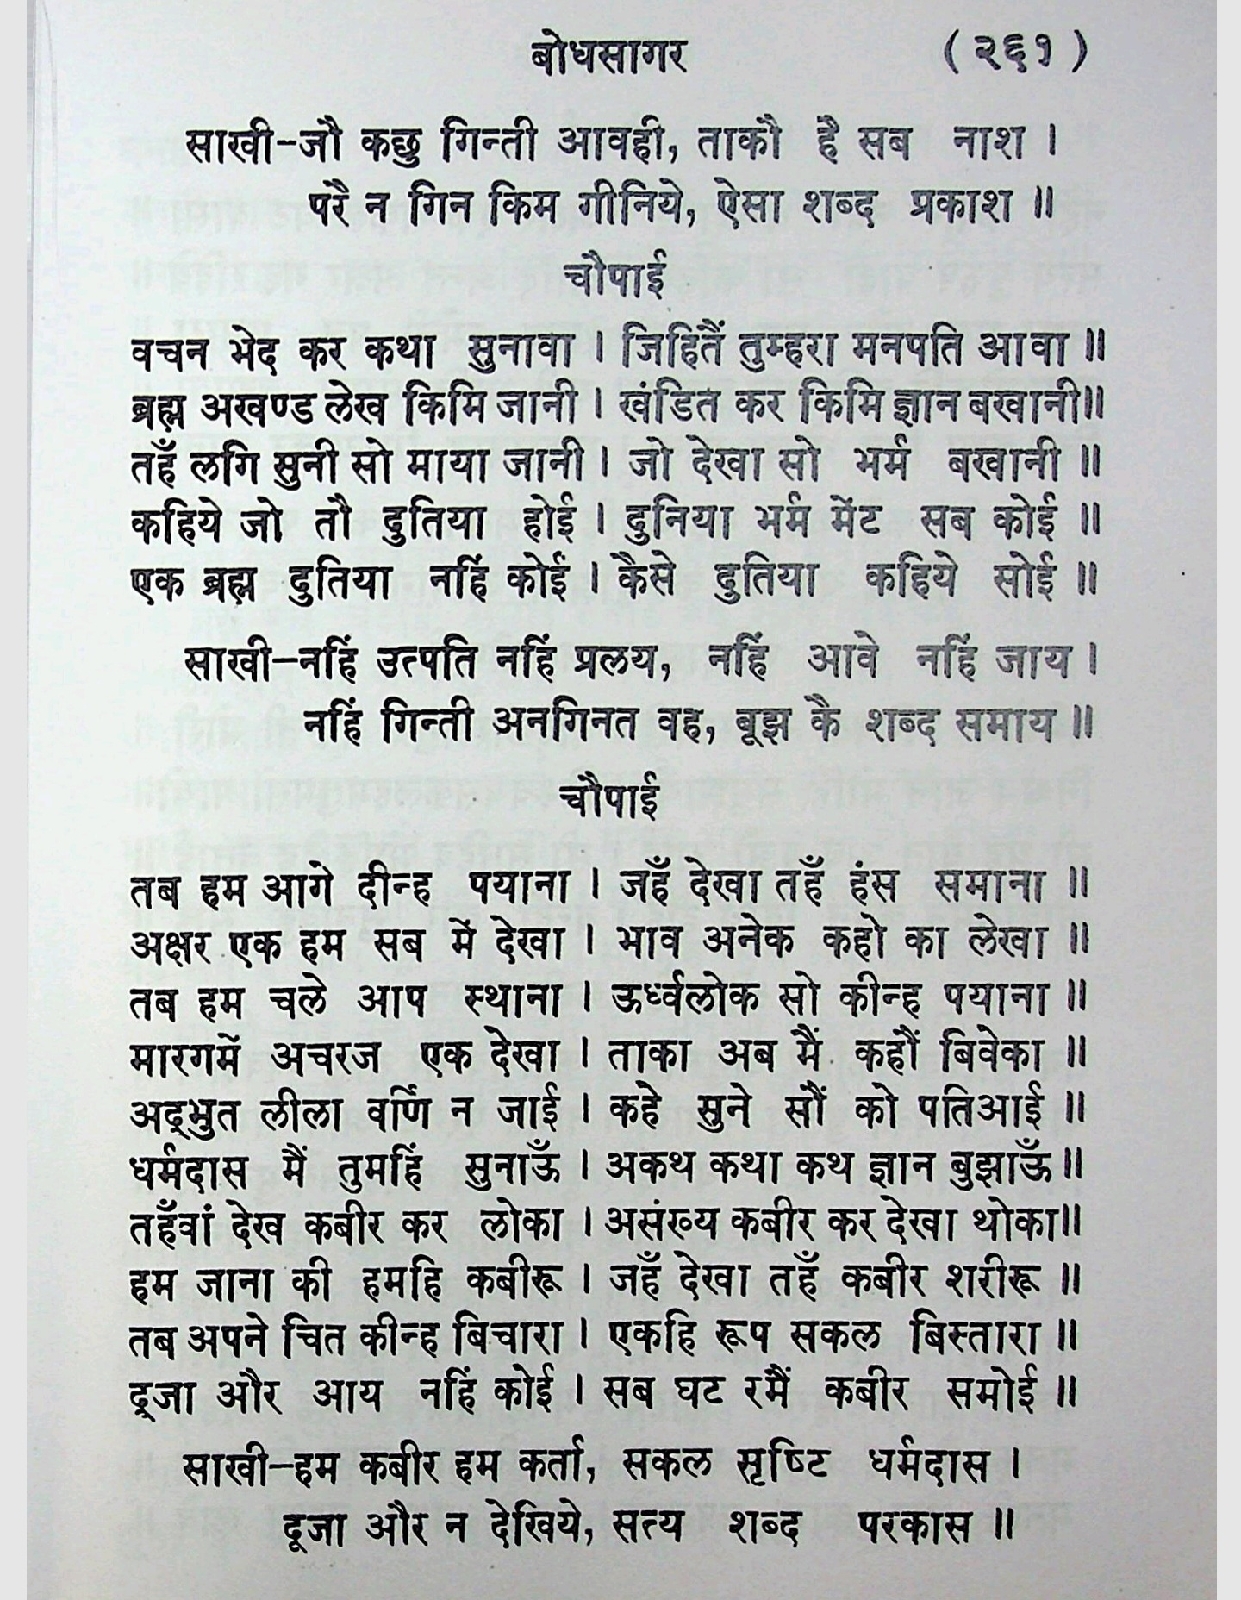 बोधसागर (२६१)
साखी-जौ कछु गिन्ती आवही, ताकौ है सब नाश ।
परै न गिन किम गीनिये, ऐसा शब्द प्रकाश ॥
चौपाई
वचन भेद कर कथा सुनावा । जिहितैं तुम्हरा मनपति आवा ॥
ब्रह्म अखण्ड लेख किमि जानी । खंडित कर किमि ज्ञान बखानी॥
तहँ लगि सुनी सो माया जानी । जो देखा सो भर्म बखानी ॥
कहिये जो तौ दुतिया होई । दुनिया भर्म मेंट सब कोई ॥
एक ब्रह्म दुतिया नहिं कोई । कैसे दुतिया कहिये सोई ॥
साखी-नहिं उत्पति नहिं प्रलय, नहिं आवे नहिं जाय ।
नहिं गिन्ती अनगिनत वह, बूझ कै शब्द समाय ॥
चौपाई
तब हम आगे दीन्ह पयाना । जहँ देखा तहँ हंस समाना ॥
अक्षर एक हम सब में देखा । भाव अनेक कहो का लेखा ॥
तब हम चले आप स्थाना । ऊर्ध्वलोक सो कीन्ह पयाना ॥
मारगमें अचरज एक देखा । ताका अब मैं कहौं बिवेका ॥
अद्भुत लीला वर्णि न जाई । कहे सुने सौं को पतिआई ॥
धर्मदास मैं तुमहिं सुनाऊँ । अकथ कथा कथ ज्ञान बुझाऊँ॥
तहँवां देख कबीर कर लोका । असंख्य कबीर कर देखा थोका॥
हम जाना की हमहि कबीरू । जहँ देखा तहँ कबीर शरीरू ॥
तब अपने चित कीन्ह बिचारा । एकहि रूप सकल बिस्तारा ॥
दूजा और आय नहिं कोई । सब घट रमैं कबीर समोई ॥
साखी-हम कबीर हम कर्ता, सकल सृष्टि धर्मदास ।
दूजा और न देखिये, सत्य शब्द परकास ॥